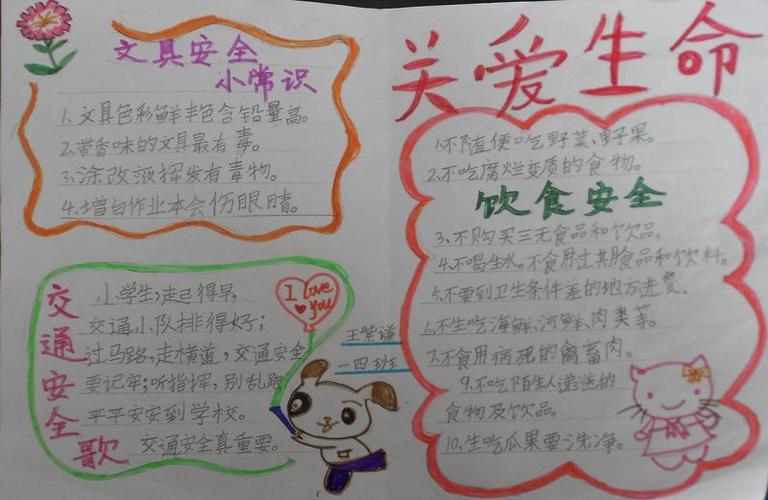 关爱生命
文具安全
小常识
1.文具色彩鲜丰色含铅量高。
2.带香味的文具最有毒。
3.涂改液挥发有毒物。
4.增白作业本会伤眼睛。
交通安全歌
小学生,走起得早,
交通小队排得好;
过马路,走横道,交通安全
要记牢;听指挥,别乱跑
平平安安到学校。
交通安全真重要。
I love you
王紫谦
一四班
1.不随便吃野菜、野果。
2.不吃腐烂变质的食物。
饮食安全
3.不购买三无食品和饮品。
4.不喝生水。不食用过期食品和饮料。
5.不要到卫生条件差的地方进餐。
6.不生吃海鲜,河鲜,肉类等。
7.不食用病死的禽畜肉。
9.不吃陌生人递送的
食物及饮品。
10.生吃瓜果要洗净。